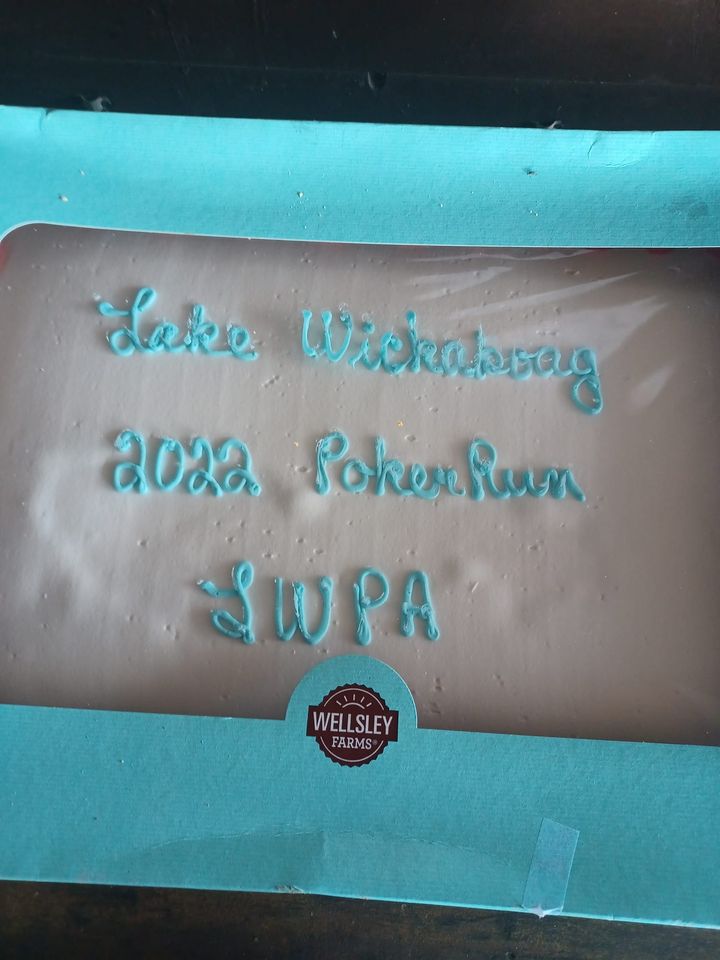 Lake Wickaboag
2022 Poker Run
LWPA
WELLSLEY
FARMS®